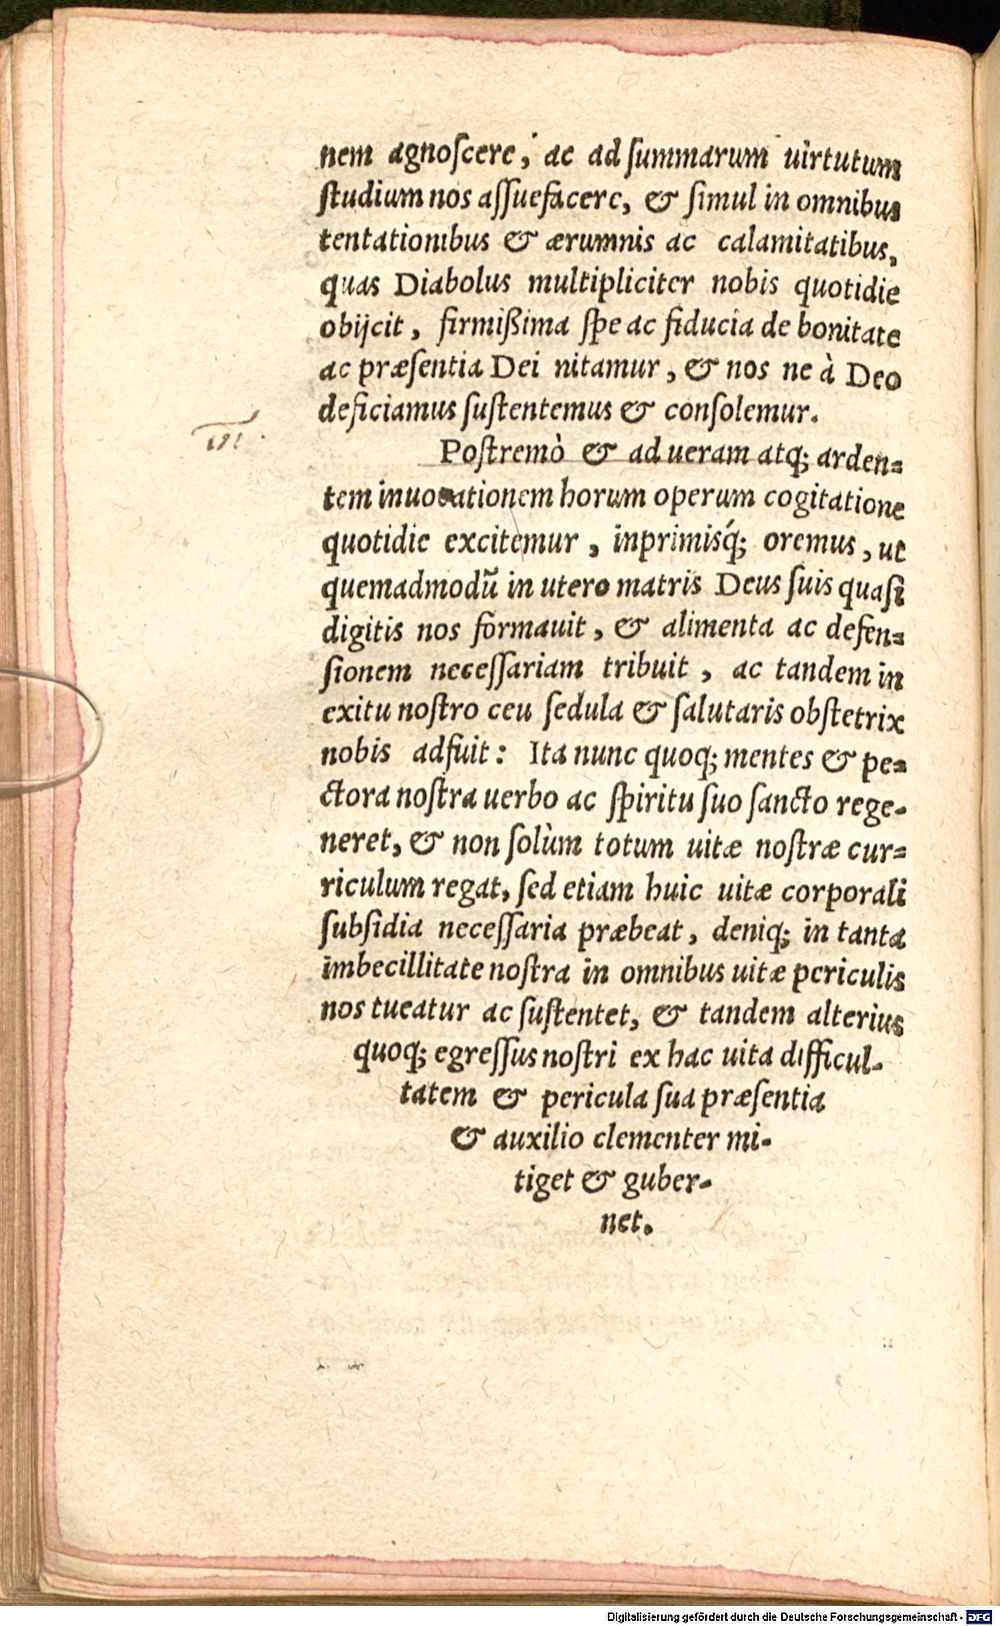 nem agnoſcere, ac ad ſummarum uirtutum
ſtudium nos aſſuefacere, & ſimul in omnibus
tentationibus & ærumnis ac calamitatibus,
quas Diabolus multipliciter nobis quotidie
obijcit, firmißima ſpe ac fiducia de bonitate
ac præſentia Dei nitamur, & nos ne à Deo
deficiamus ſuſtentemus & conſolemur.
Poſtremò & ad ueram atq; arden=
tem inuocationem horum operum cogitatione
quotidie excitemur, inprimisq́; oremus, ut
quemadmodū in utero matris Deus ſuis quaſi
digitis nos formauit, & alimenta ac defen=
ſionem neceſſariam tribuit, ac tandem in
exitu noſtro ceu ſedula & ſalutaris obſtetrix
nobis adfuit: Ita nunc quoq; mentes & pe=
ctora noſtra uerbo ac ſpiritu ſuo ſancto rege-
neret, & non ſolùm totum uitæ noſtræ cur=
riculum regat, ſed etiam huic uitæ corporali
ſubſidia neceſſaria præbeat, deniq; in tanta
imbecillitate noſtra in omnibus uitæ periculis
nos tueatur ac ſuſtentet, & tandem alterius
quoq; egreſſus noſtri ex hac uita difficul-
tatem & pericula ſua præſentia
& auxilio clementer mi-
tiget & guber-
net.
Digitalisierung gefördert durch die Deutsche Forschungsgemeinschaft - DFG